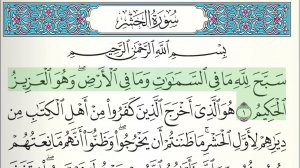 سُورَةُ الحَشْرِ
بِسْمِ اللَّهِ الرَّحْمَٰنِ الرَّحِيمِ
سَبَّحَ لِلَّهِ مَا فِي السَّمَٰوَٰتِ وَمَا فِي الْأَرْضِ ۖ وَهُوَ الْعَزِيزُ
الْحَكِيمُ ١ هُوَ الَّذِي أَخْرَجَ الَّذِينَ كَفَرُوا مِنْ أَهْلِ الْكِتَٰبِ مِن
دِيَٰرِهِمْ لِأَوَّلِ الْحَشْرِ ۚ مَا ظَنَنتُمْ أَن يَخْرُجُوا ۖ وَظَنُّوا أَنَّهُم مَّانِعَتُهُمْ